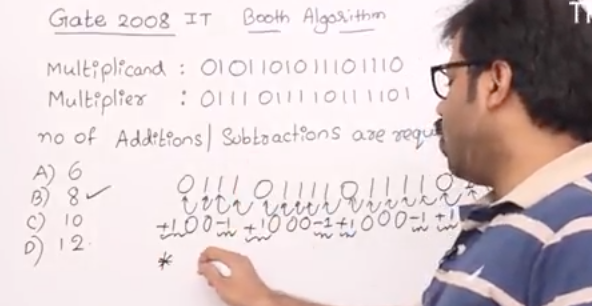 Gate 2008 IT Booth Algorithm
Multiplicand : 0101101011101110
Multiplier : 0111011110111101
no of Additions/Subtractions are
A) 6
B) 8 ✓
C) 10
D) 12.
0 1 1 1 0 1 1 1 1 0 1 1 1 1 0
+1 0 0 -1 +1 0 0 0 -1 +1 0 0 0 -1 +1
*